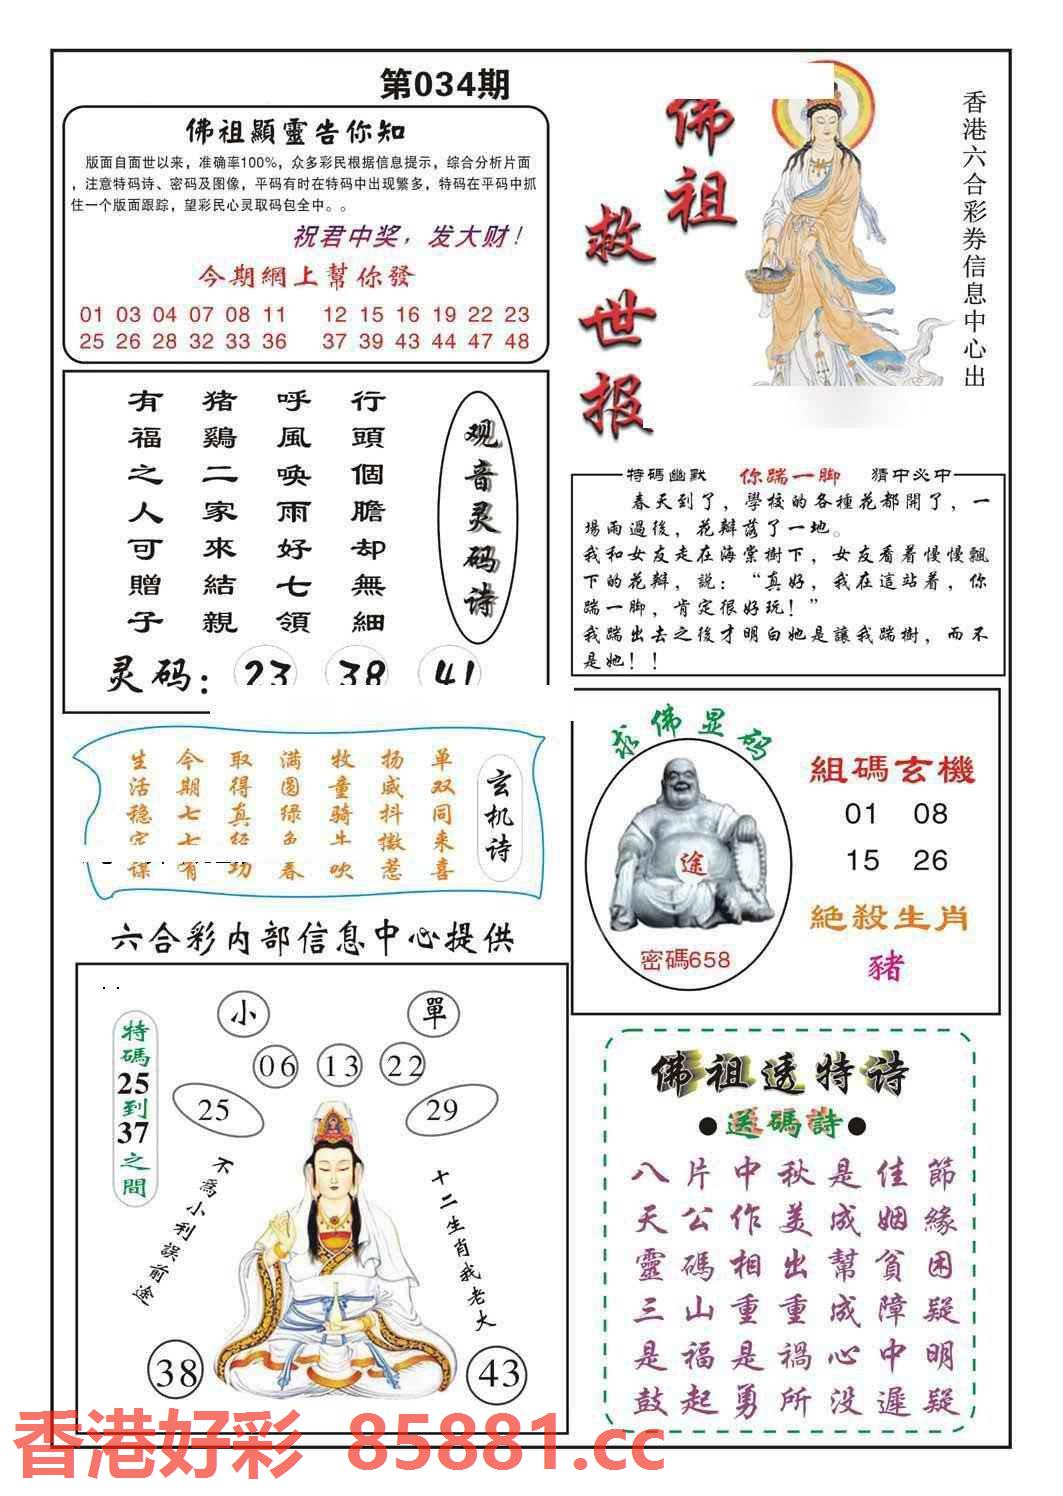 第034期
佛祖顯靈告你知
版面自面世以来，准确率100%，众多彩民根据信息提示，综合分析片面
，注意特码诗、密码及图像，平码有时在特码中出现繁多，特码在平码中抓
住一个版面跟踪，望彩民心灵取码包全中。。
祝君中奖，发大财！
今期網上幫你發
01 03 04 07 08 11 12 15 16 19 22 23
25 26 28 32 33 36 37 39 43 44 47 48
佛祖
救世报
香港六合彩券信息中心出
观音灵码诗
行頭個膽却無細
呼風唤雨好七領
猪鷄二家來結親
有福之人可贈子
灵码：23 38 41
特碼幽默 你踹一脚 猜中必中
春天到了，學校的各種花都開了，一
場雨過後，花辦落了一地。
我和女友走在海棠樹下，女友看着慢慢飄
下的花辦，説：“真好，我在這站着，你
踹一脚，肯定很好玩！”
我踹出去之後才明白她是讓我踹樹，而不
是她！！
玄机诗
单双同来喜
扬威抖擞惹
牧童骑牛吹
满园绿色春
取得真经功
今期七七有
生活稳定谋
求佛显码
途
密碼658
組碼玄機
01 08
15 26
絶殺生肖
豬
六合彩内部信息中心提供
特碼25到37之間
小
單
06 13 22
25
29
不為小利誤前途
十二生肖我老大
38
43
佛祖透特诗
●送碼詩●
八片中秋是佳節
天公作美成姻緣
靈碼相出幫貧困
三山重重成障疑
是福是禍心中明
鼓起勇所没遲疑
香港好彩 85881.cc